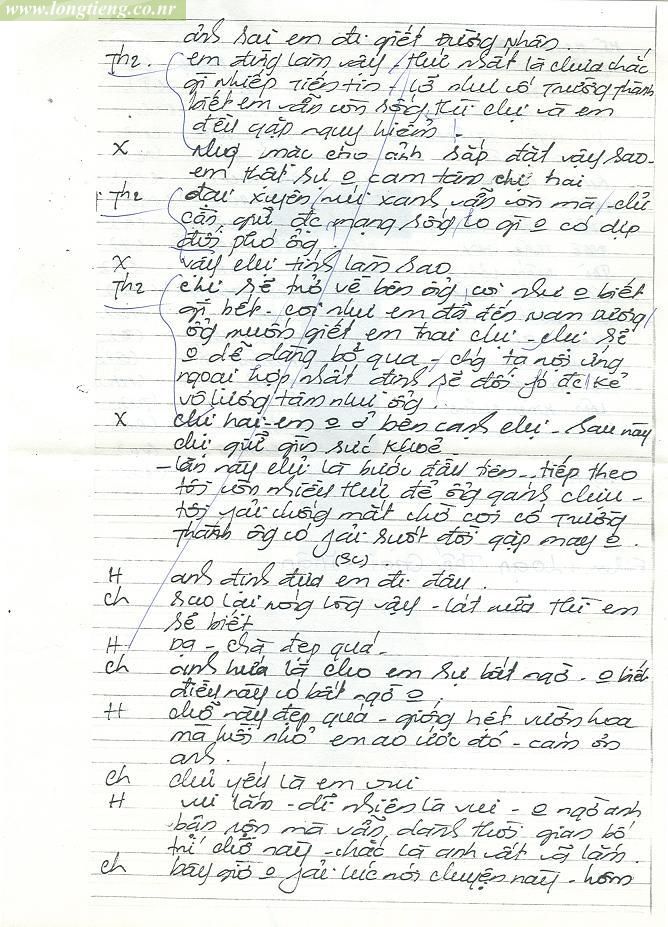 www.longtieng.co.nr
ảnh sai em đi giết Đường Nhân.
Th2. em đừng làm vậy - thứ nhất là chưa chắc
gì nhiếp tiến tín - lỡ như cố Trường Thành
biết em vẫn còn sống thì chị và em
đều gặp nguy hiểm -
X nhg mặc cho ảnh sắp đặt vậy sao -
em thật sự o cam tâm chị hai
Th2 đại xuyên núi xanh vẫn còn mà - chỉ
cần giữ đc mạng sống lo gì o có dịp
đối phó ổg.
X vậy chị tính làm sao
Th2 chị sẽ trở về bên ổg coi như o biết
gì hết - coi như em đã đến nam dương
ổg muốn giết em trai chị - chị sẽ
o dể dàng bỏ qua - chg ta nội ứng
ngoại hợp nhất định sẽ đối fó đc kẻ
vô lương tâm như ổg.
X chị hai - em o ở bên cạnh chị - sau này
chị giữ gìn sức khoẻ
- lần này chỉ là bước đầu tiên - tiếp theo
tôi còn nhiều thứ để ổg gánh chịu -
tôi fải chống mắt chờ coi cố Trường
Thành ôg có fải suốt đời gặp may o.
(SC)
H anh định đưa em đi đâu.
ch sao lại nóng lòg vậy - lát nữa thì em
sẽ biết
H Dạ - chà đẹp quá -
ch anh hứa là cho em sự bất ngờ - o biết
điều này có bất ngờ o.
H chỗ này đẹp quá - giống hệt vườn hoa
mà hồi nhỏ em ao ước đó - cám ơn
anh.
ch chủ yếu là em vui
H vui lắm - dĩ nhiên là vui - o ngờ anh
bận rộn mà vẫn dành thời gian bố
trí chỗ này - chắc là anh vất vã lắm.
ch bây giờ o fải lúc nói chuyện này - hôm